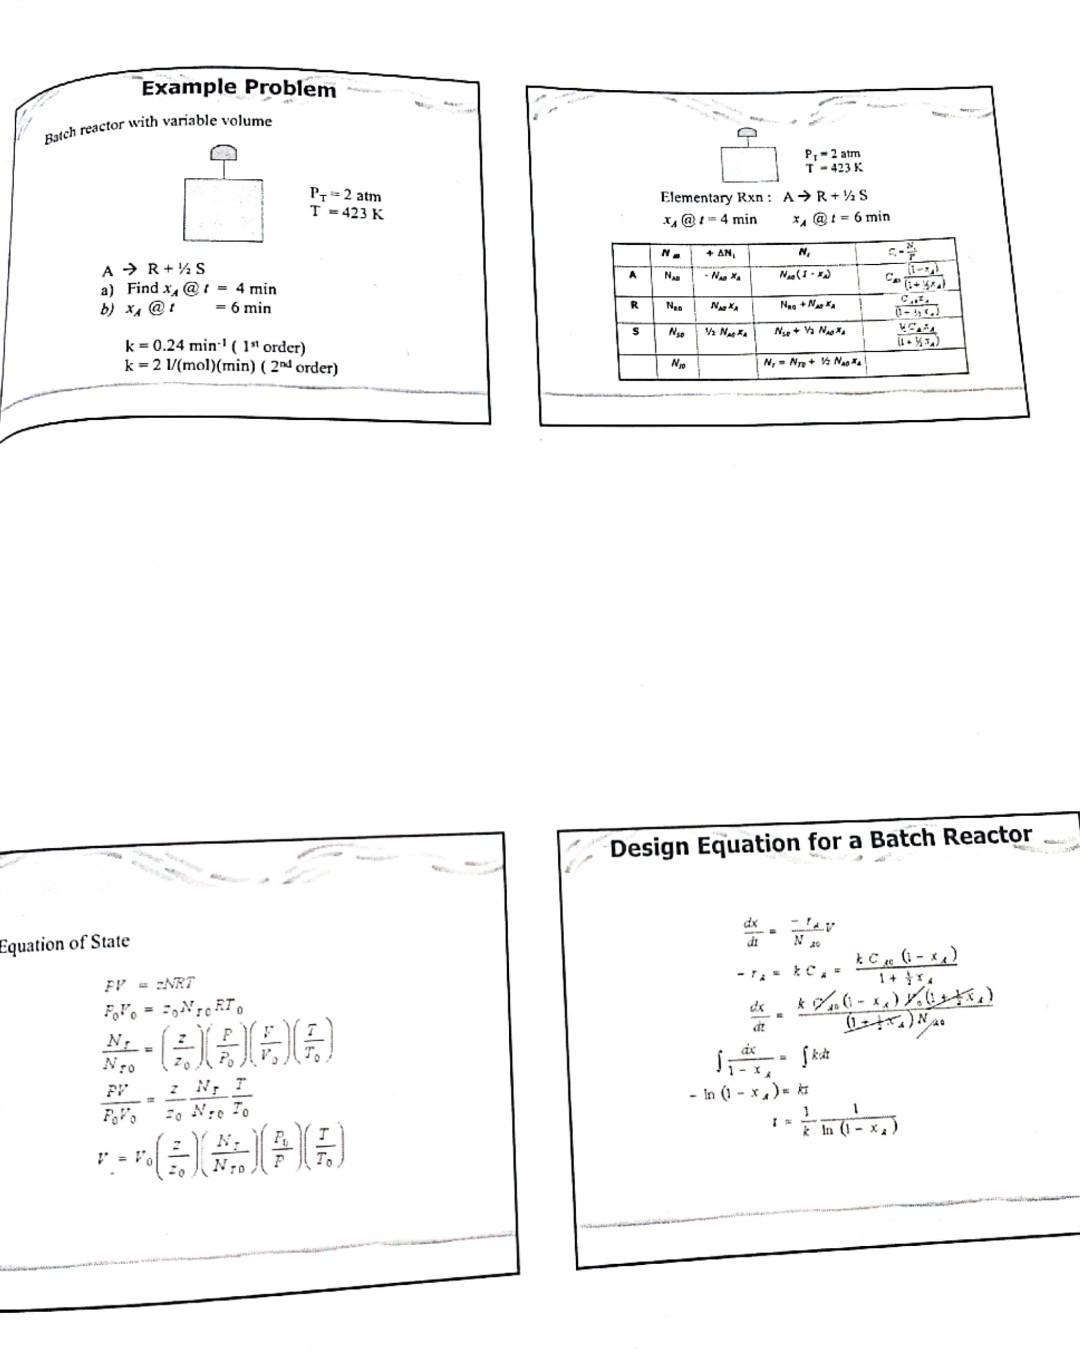 Example Problem
Batch reactor with variable volume
P_T = 2 atm
T = 423 K
A → R + ½ S
a) Find x_A @ t = 4 min
b) x_A @ t = 6 min
k = 0.24 min⁻¹ ( 1st order)
k = 2 l/(mol)(min) ( 2nd order)
P_T = 2 atm
T = 423 K
Elementary Rxn : A → R + ½ S
x_A @ t = 4 min x_A @ t = 6 min
+ ΔN_i N_i
A N_A0 - N_A0 x_A N_A0 (1 - x_A)
R N_R0 N_A0 x_A N_R0 + N_A0 x_A
S N_S0 ½ N_A0 x_A N_S0 + ½ N_A0 x_A
N_T0 N_T = N_T0 + ½ N_A0 x_A
Equation of State
PV = zNRT
P_0V_0 = z_0N_T0RT_0
N_T/N_T0 = (z/z_0)(P/P_0)(V/V_0)(T/T_0)
PV/P_0V_0 = z/z_0 N_T/N_T0 T/T_0
V = V_0(z/z_0)(N_T/N_T0)(P_0/P)(T/T_0)
Design Equation for a Batch Reactor
dx/dt = -r_A V/N_A0
-r_A = kC_A = kC_A0(1 - x_A)/1 + ½x_A
dx/dt = kC_A0(1 - x_A)V_0(1 + ½x_A)/(1 + ½x_A)N_A0
∫ dx/1 - x_A = ∫ kdt
- ln (1 - x_A) = kt
t = 1/k 1/ln (1 - x_A)